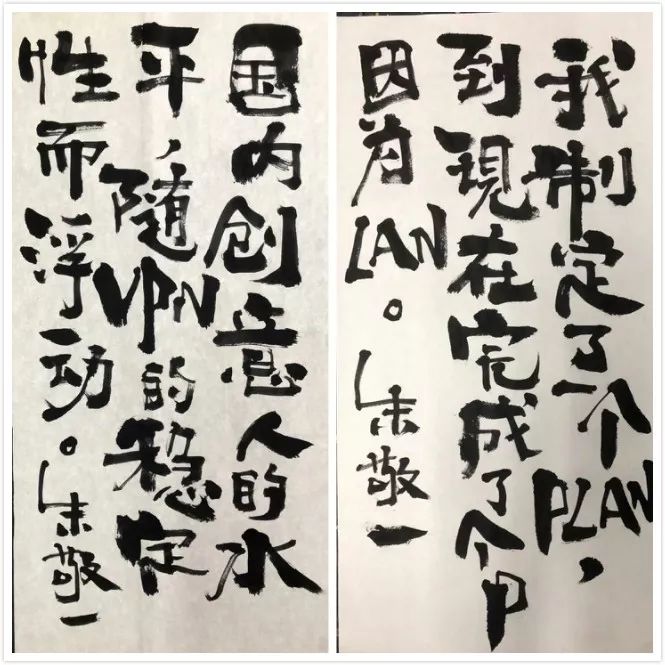 国内创意人的水
平，随VPN的稳定
性而浮动。朱敬一
我制定了一个PLAN，
到現在完成了个P
因为LAN。朱敬一